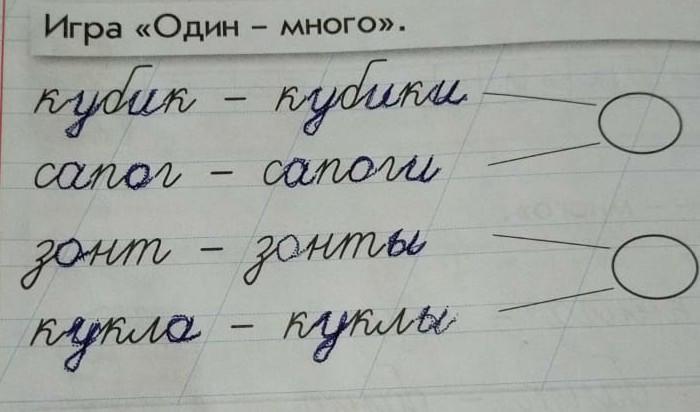 Игра «Один – много».
кубик – кубики
сапог – сапоги
зонт – зонты
кукла – куклы